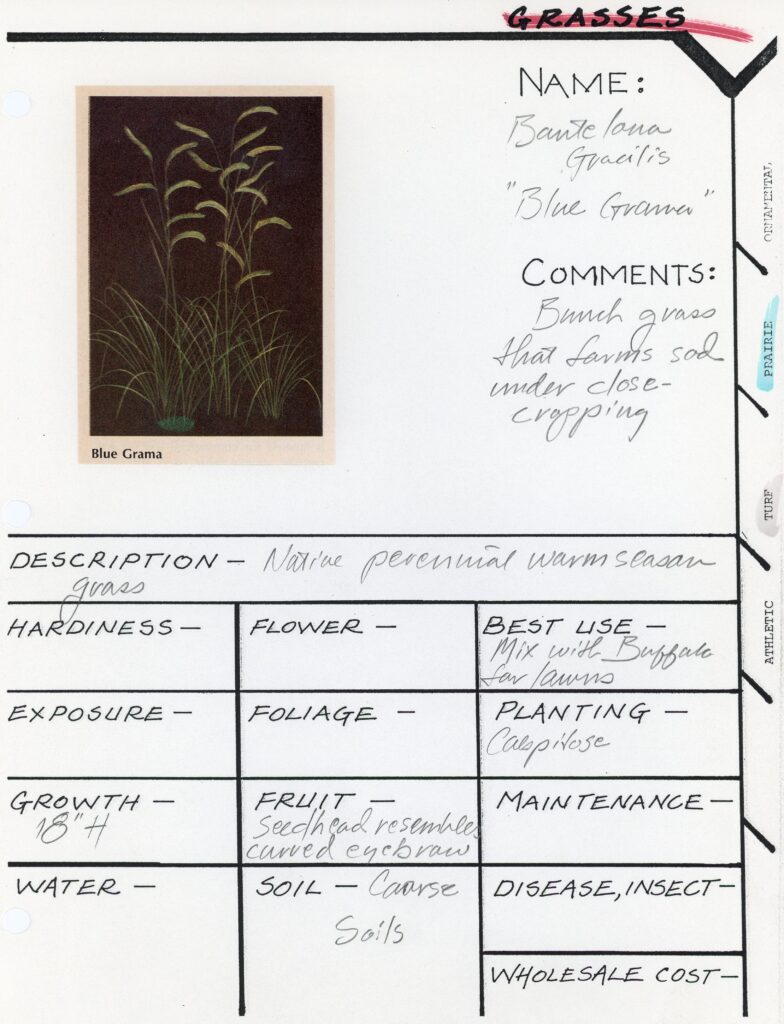 GRASSES
NAME:
Bouteloua
Gracilis
"Blue Grama"
COMMENTS:
Bunch grass
that forms sod
under close-
cropping
Blue Grama
ORNAMENTAL
PRAIRIE
TURF
ATHLETIC
DESCRIPTION – Native perennial warm season
grass
HARDINESS –
FLOWER –
BEST USE –
Mix with Buffalo
for lawns
EXPOSURE –
FOLIAGE –
PLANTING –
Caspitose
GROWTH –
18" H
FRUIT –
Seedhead resembles
curved eyebrow
MAINTENANCE –
WATER –
SOIL – Coarse
Soils
DISEASE, INSECT –
WHOLESALE COST –